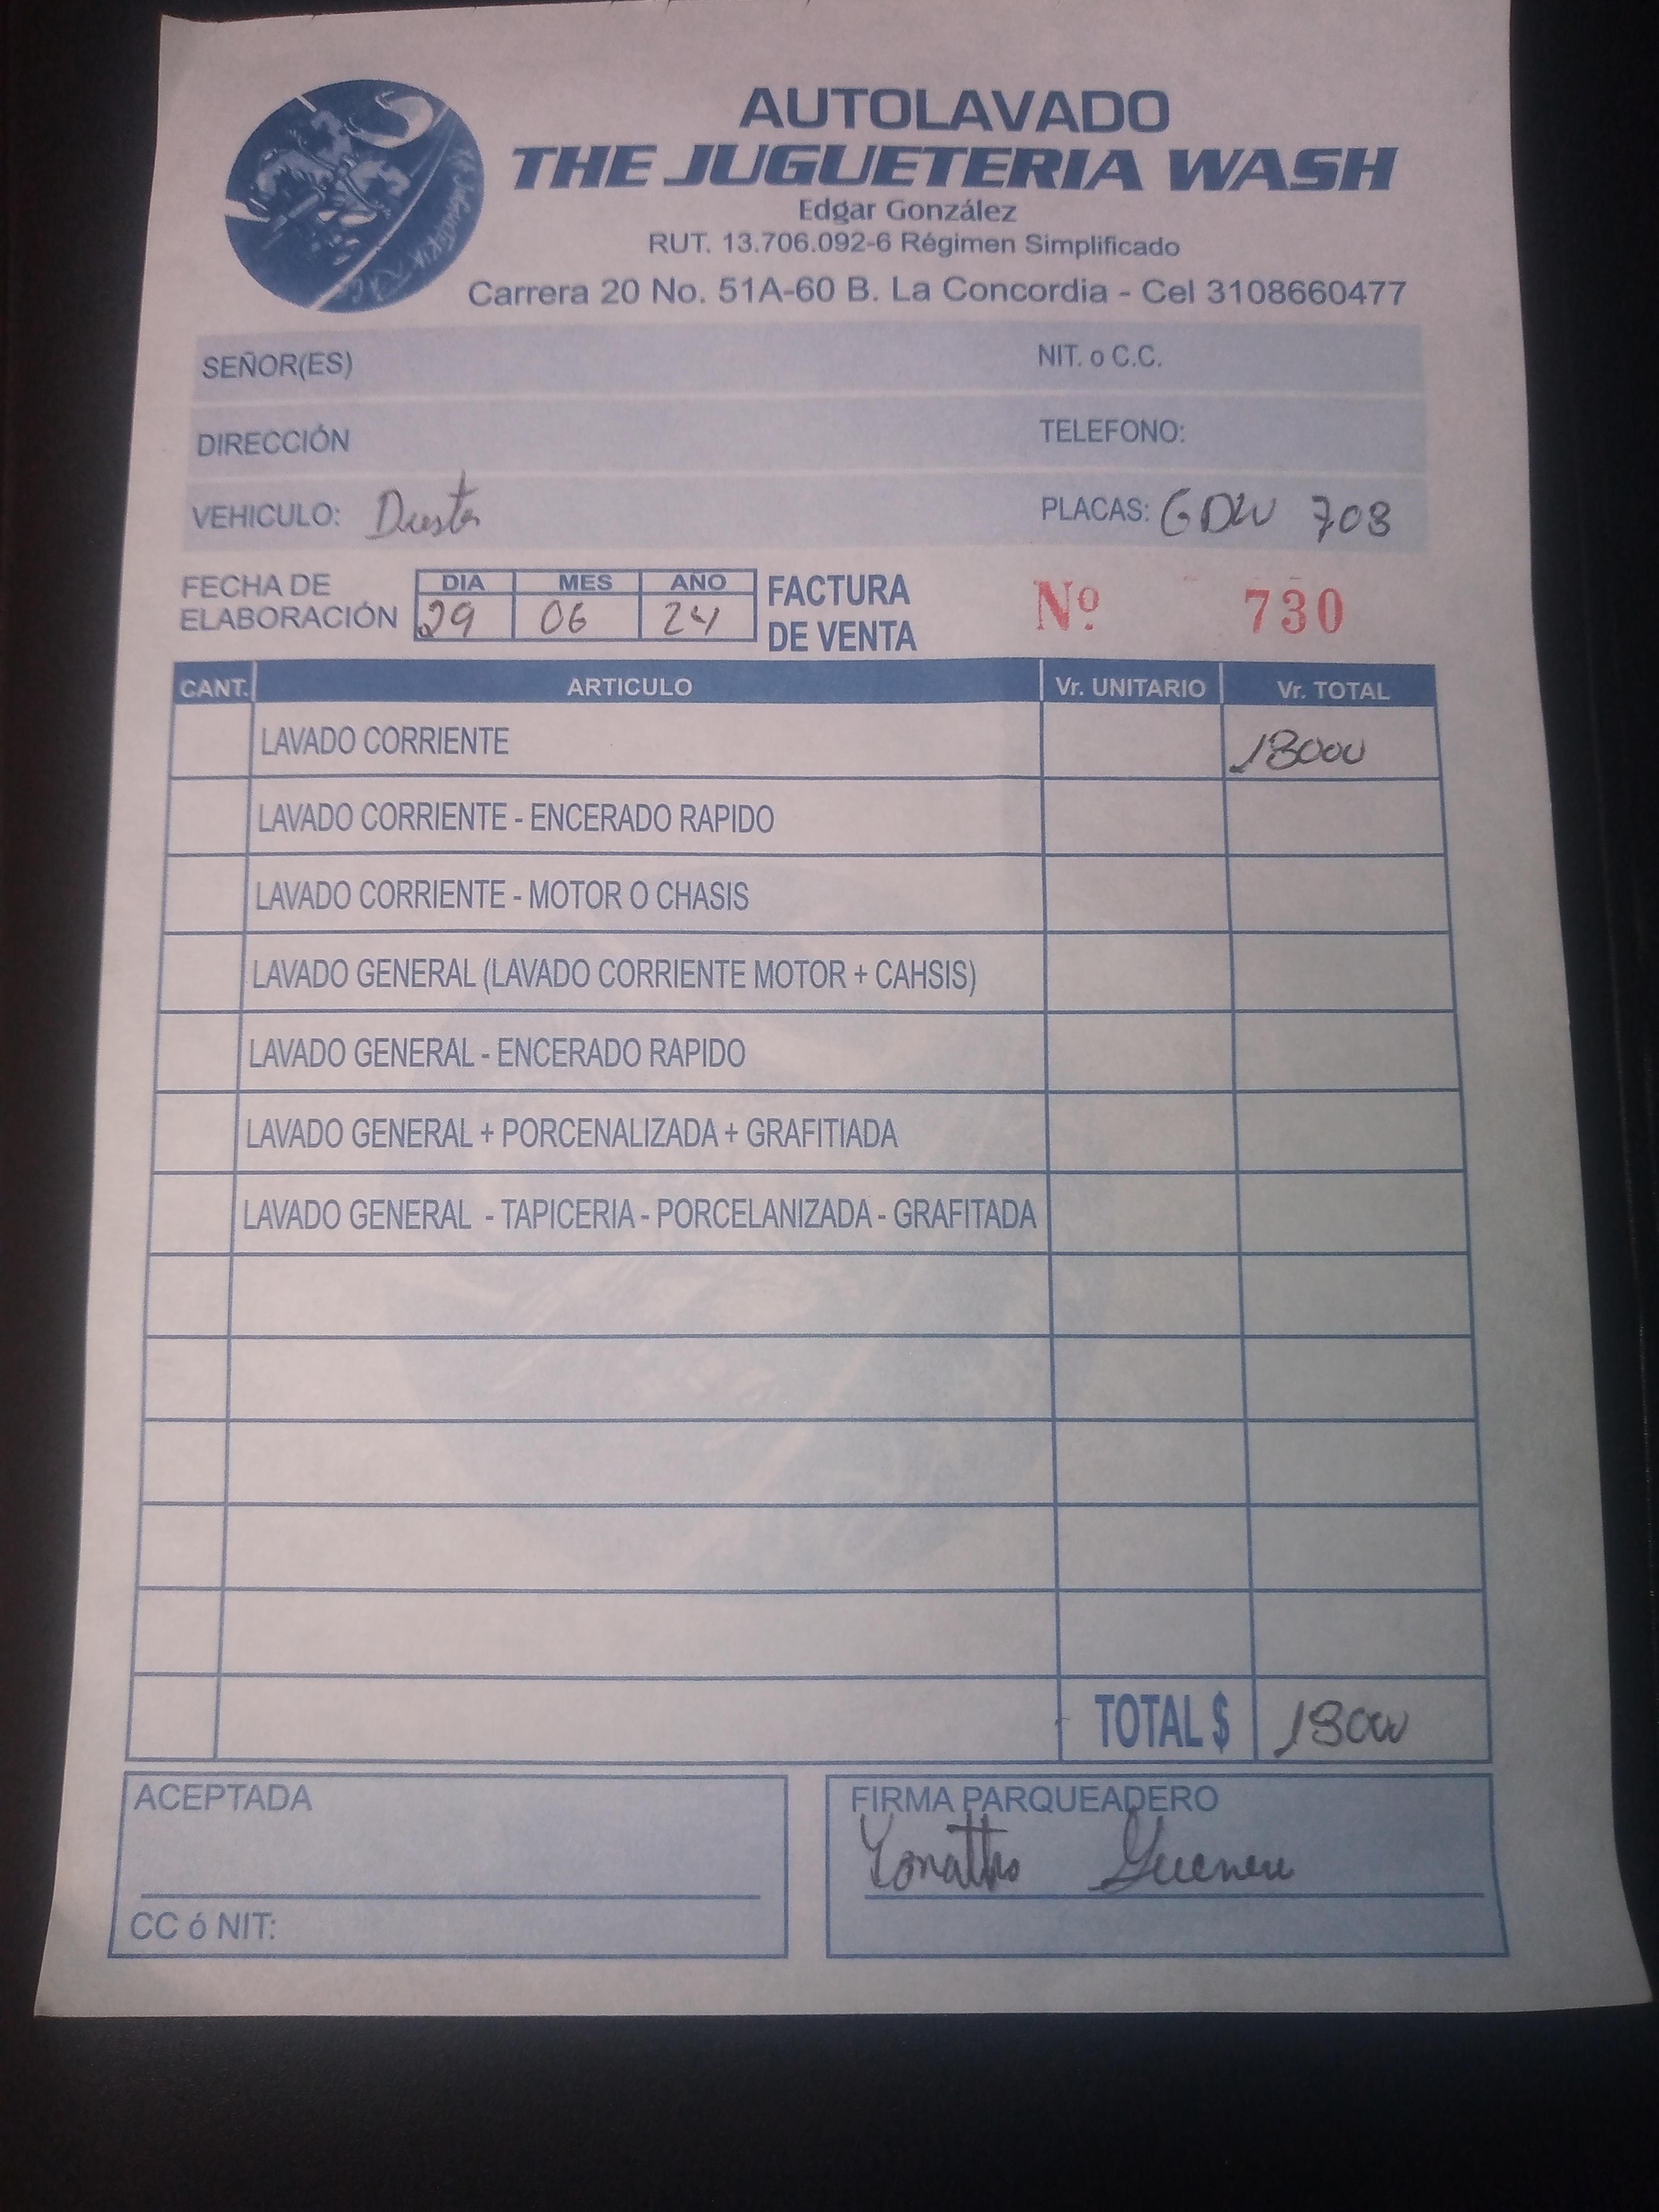 AUTOLAVADO
THE JUGUETERIA WASH
Edgar González
RUT. 13.706.092-6 Régimen Simplificado
Carrera 20 No. 51A-60 B. La Concordia - Cel 3108660477
SEÑOR(ES) NIT. o C.C.
DIRECCIÓN TELEFONO:
VEHICULO: Duster PLACAS: GDW 708
FECHA DE ELABORACIÓN DIA MES AÑO FACTURA DE VENTA Nº 730
29 06 24
CANT. ARTICULO Vr. UNITARIO Vr. TOTAL
LAVADO CORRIENTE 18000
LAVADO CORRIENTE - ENCERADO RAPIDO
LAVADO CORRIENTE - MOTOR O CHASIS
LAVADO GENERAL (LAVADO CORRIENTE MOTOR + CAHSIS)
LAVADO GENERAL - ENCERADO RAPIDO
LAVADO GENERAL + PORCENALIZADA + GRAFITIADA
LAVADO GENERAL - TAPICERIA - PORCELANIZADA - GRAFITADA
TOTAL $ 18000
ACEPTADA FIRMA PARQUEADERO
CC ó NIT: